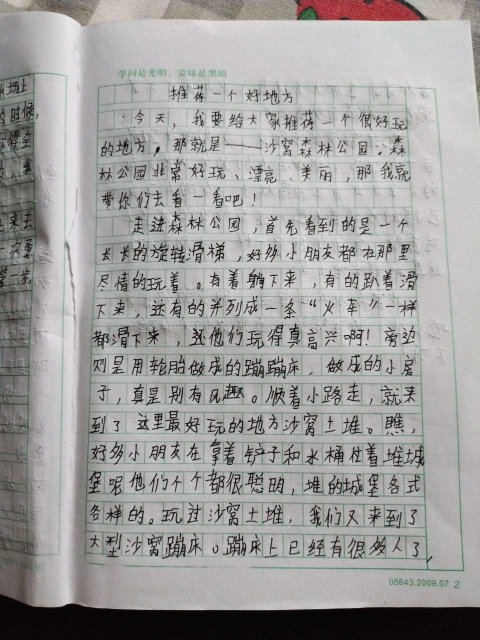 学问是光明，蒙昧是黑暗
推荐一个好地方
今天，我要给大家推荐一个很好玩
的地方。那就是——沙窝森林公园。森
林公园非常好玩、漂亮、美丽，那我就
带你们去看一看吧！
走进森林公园，首先看到的是一个
长长的旋转滑梯，好多小朋友都在那里
尽情的玩着。有着躺下来，有的趴着滑
下来，还有的并列成一条“火车”一样
都滑下来，他们玩得真高兴啊！旁边
则是用轮胎做成的蹦蹦床，做成的小房
子，真是别有风趣。顺着小路走，就来
到了这里最好玩的地方沙窝土堆。瞧，
好多小朋友在拿着铲子和水桶住着堆城
堡呢他们个个都很聪明，堆的城堡各式
各样的。玩过沙窝土堆，我们又来到了
大型沙窝蹦床。蹦床上已经有很多人了，
05643.2009.07 2